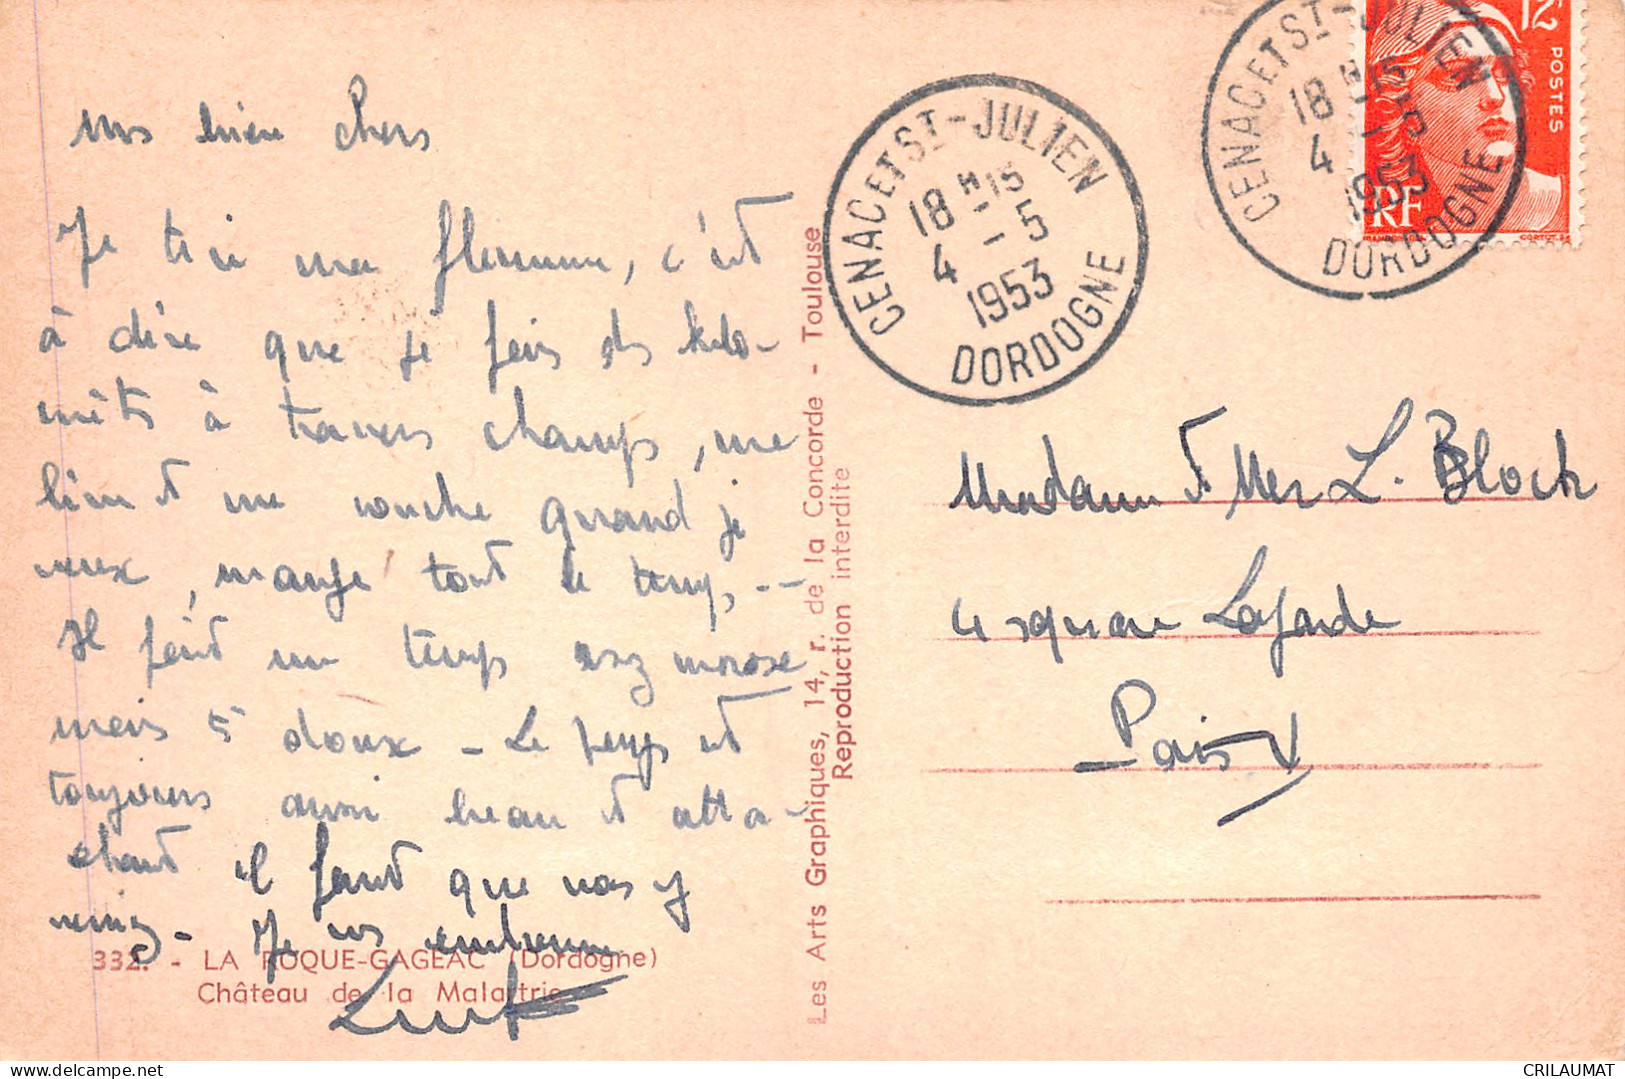 mes bien chers
Je tire ma flemme, c'est
à dire que je fais des kilo-
mètres à travers champs, me
lève et me couche quand je
veux, mange tout le temps --
Il fait un temps assez morose
mais doux - Le pays est
toujours aussi beau et atta-
chant il faut que vous y
veniez - Je vs embrasse
332. - LA ROQUE-GAGEAC (Dordogne)
Château de la Malartrie
Les Arts Graphiques, 14, r. de la Concorde - Toulouse
Reproduction interdite
CENAC ET ST-JULIEN
18 H 15
4 - 5
1953
DORDOGNE
CENAC ET ST-JULIEN
18 H 15
4 - 5
1953
DORDOGNE
12
POSTES
RF
Madame et Mer L. Bloch
4 square Lagarde
Paris V
CRILAUMAT